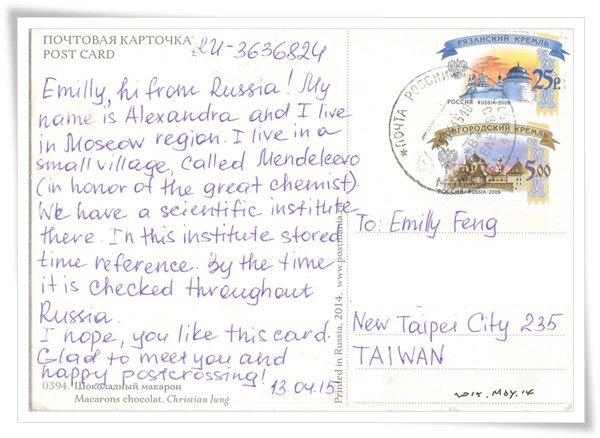 ПОЧТОВАЯ КАРТОЧКА
POST CARD
RU-3636824
Emilly, hi from Russia! My
name is Alexandra and I live
in Moscow region. I live in a
small village, called Mendeleevo
(in honor of the great chemist).
We have a scientific institute
there. In this institute stored
time reference. By the time
it is checked throughout
Russia.
I hope, you like this card.
Glad to meet you and
happy postcrossing!
13.04.15
0394. Шоколадный макарон
Macarons chocolat. Christian Jung
Printed in Russia, 2014. www.postmania
РЯЗАНСКИЙ КРЕМЛЬ
25р.
РОССИЯ RUSSIA·2009
*ПОЧТА РОССИИ
НОВГОРОДСКИЙ КРЕМЛЬ
5,00
РОССИЯ RUSSIA·2009
To: Emilly Feng
New Taipei City 235
TAIWAN
2015. May. 14